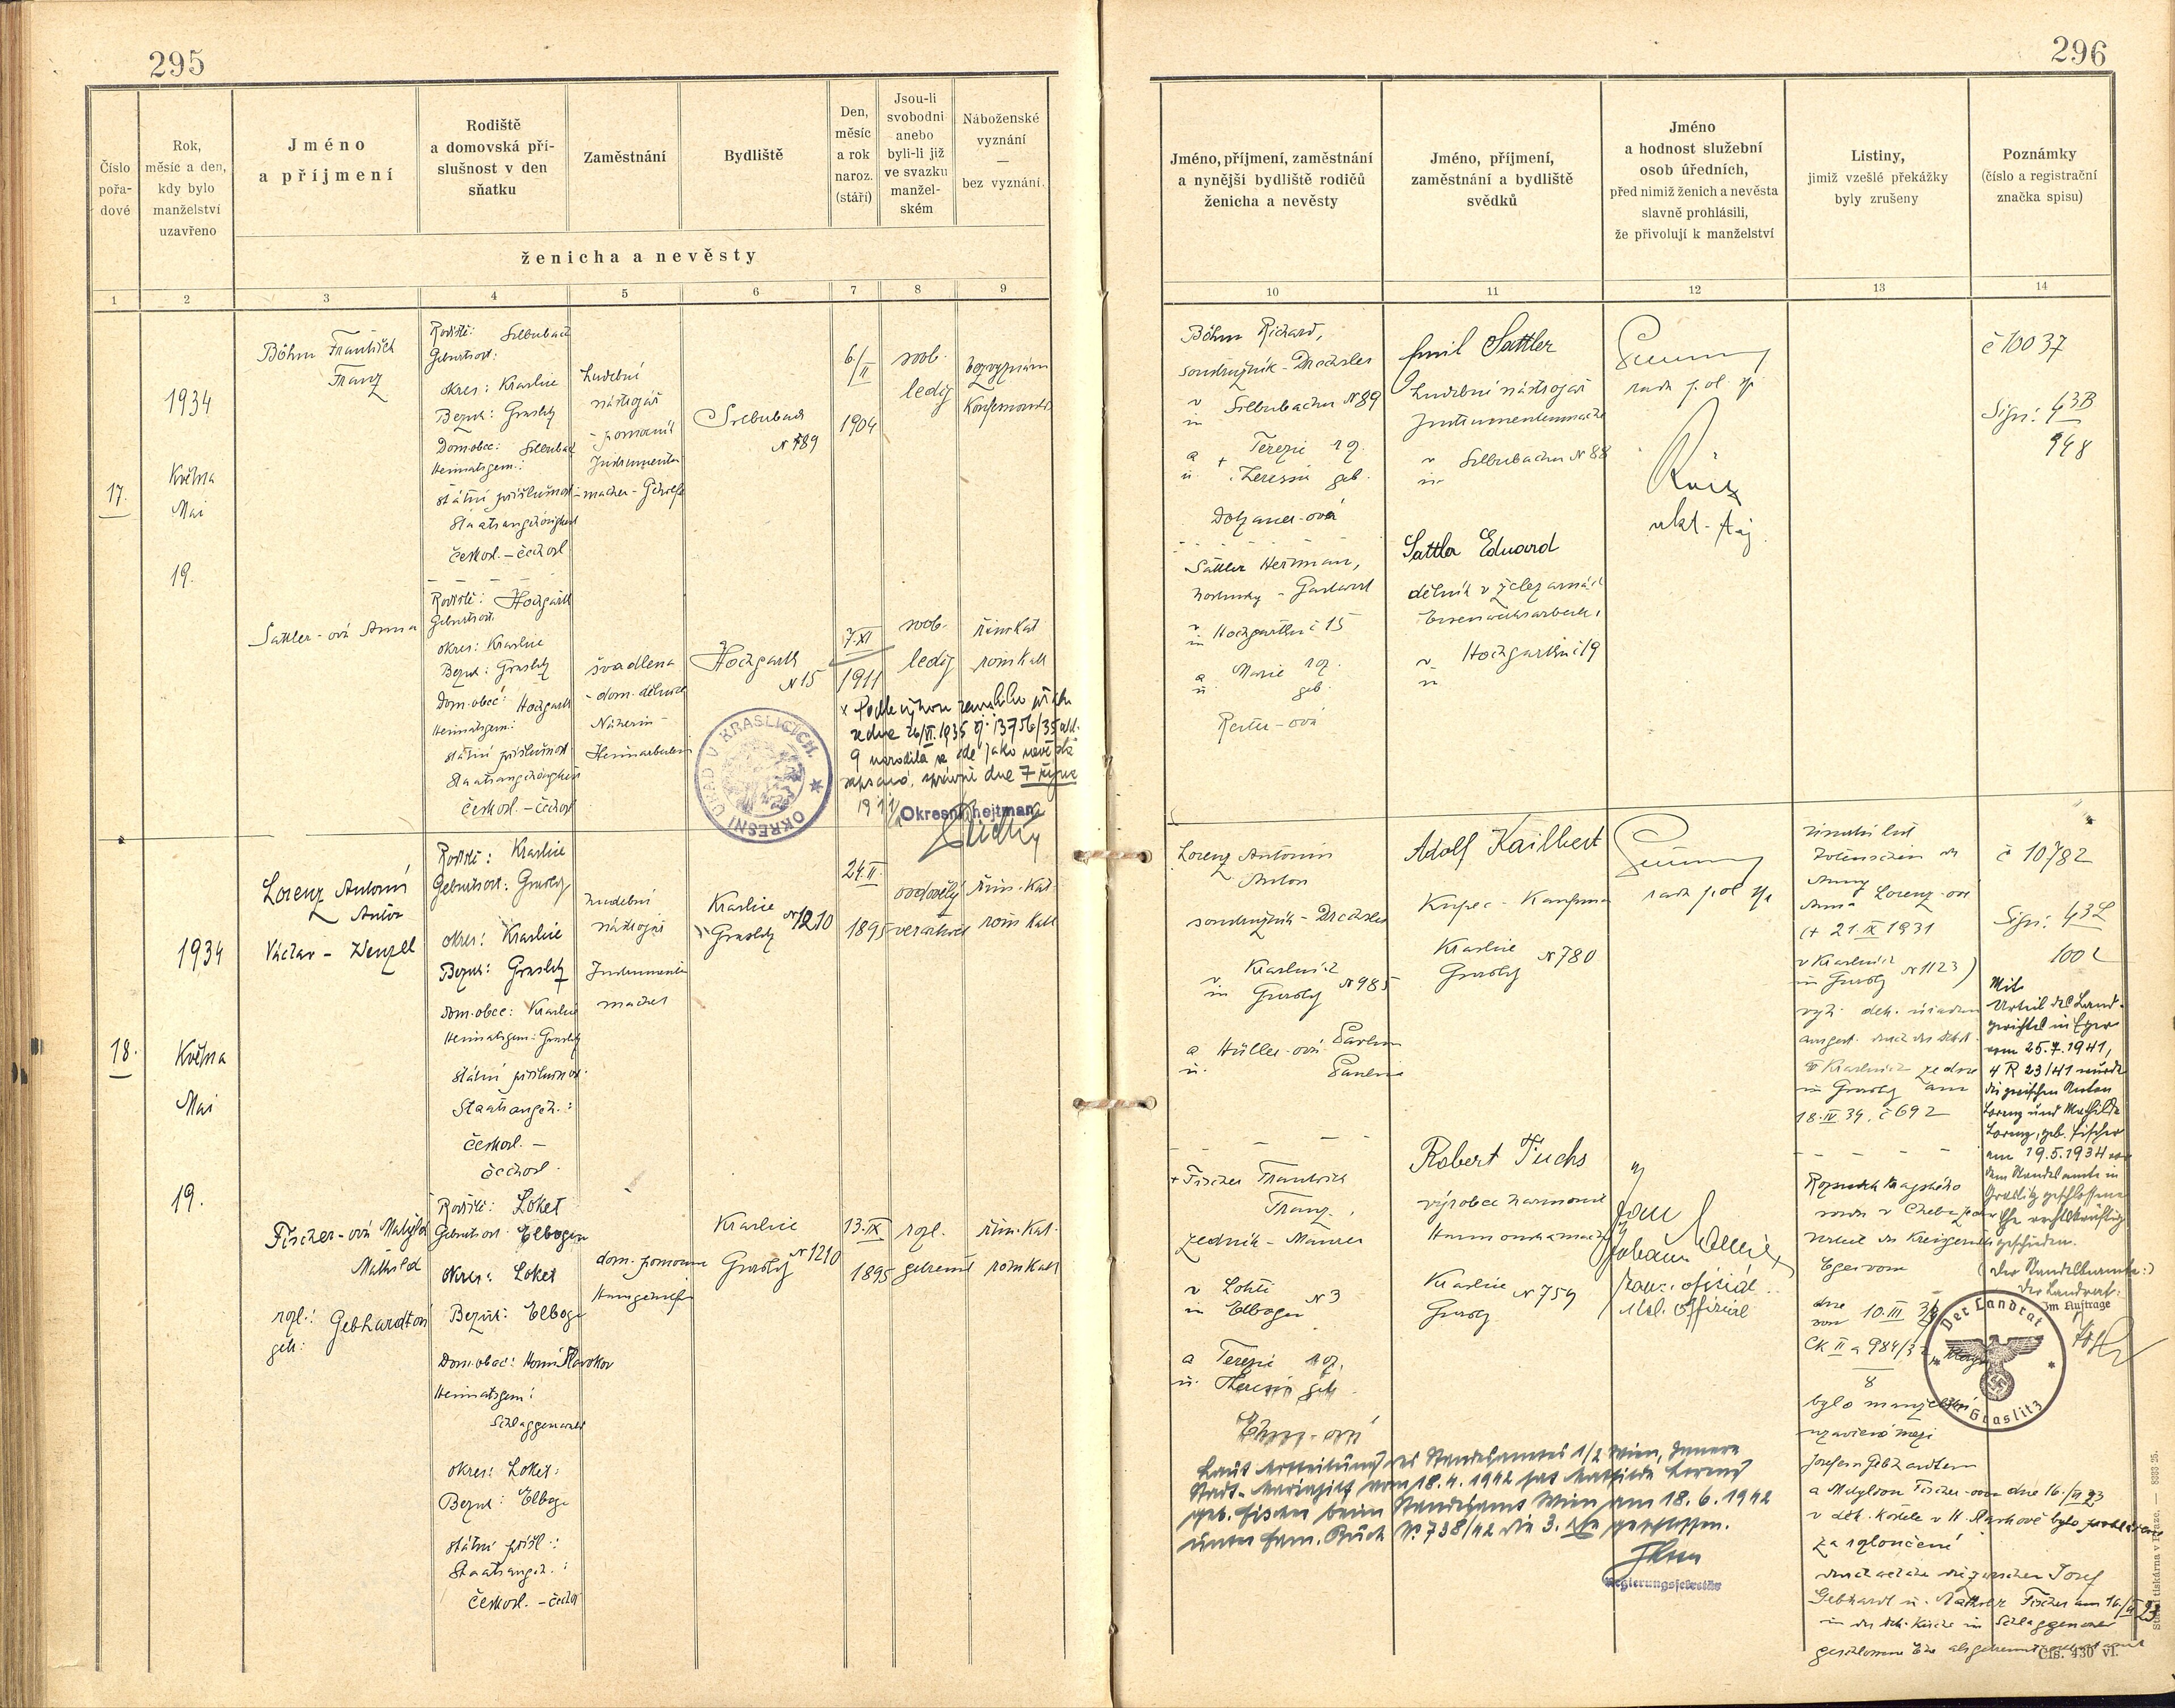 295
Číslo
pořa-
dové
Rok,
měsíc a den,
kdy bylo
manželství
uzavřeno
Jméno
a příjmení
Rodiště
a domovská pří-
slušnost v den
sňatku
Zaměstnání
Bydliště
Den,
měsíc
a rok
naroz.
(stáří)
Jsou-li
svobodni
anebo
byli-li již
ve svazku
manžel-
ském
Náboženské
vyznání
—
bez vyznání.
ženicha a nevěsty
1 2 3 4 5 6 7 8 9
17.
1934
Května
Mai
19.
Böhm František
Franz
Rodiště: Silberbach
Geburtsort:
okres: Kraslice
Bezirk: Graslitz
Dom. obec: Silberbach
Heimatsgem.:
státní příslušnost
Staatsangehörigkeit
českosl. – čechosl
hudební
nástrojař
- pomocník
Instrumenten
macher - Gehilfe
Silberbach
N 789
6./II
1904
svob.
ledig
bez vyznání
Konfessionslos
Sattler-ová Anna
Rodiště: Hochgarth
Geburtsort:
okres: Kraslice
Bezirk: Graslitz
Dom. obec: Hochgarth
Heimatsgem.:
státní příslušnost
Staatsangehörigkeit
českosl. – čechosl
švadlena
- dom. dělnice
Näherin -
Heimarbeiterin
Hochgarth
N 15
7.XI
1911
svob.
ledig
řím kat
röm kath
ze dne 26/VI.1935 čj. 13756/35 odd.
9 narodila se zde jako nevěsta
zapsaná, správně dne 7 října
1911
Okresní hejtman
OKRESNÍ ÚŘAD V KRASLICÍCH
18.
1934
Května
Mai
19.
Lorenz Antonín
Anton
Václav - Wenzel
Rodiště: Kraslice
Geburtsort: Graslitz
okres: Kraslice
Bezirk: Graslitz
dom. obec: Kraslice
Heimatsgem: Graslitz
státní příslušnost
Staatsangeh.:
českosl. –
čechosl.
hudební
nástrojař
Instrumenten
macher
Kraslice
Graslitz N 1210
24.II
1895
ovdovělý
verwitwet
řím. kat.
röm kath
Fischer-ová Matylda
Mathild
rozl.: Gebhardtová
geb:
Rodiště: Loket
Geburtsort: Elbogen
okres: Loket
Bezirk: Elbogen
Dom. obec: Horní Slavkov
Heimatsgem:
Schlaggenwald
okres: Loket:
Bezirk: Elbogen
státní přísl.:
Staatsangeh.:
českosl. – čechosl
dom. pomocnice
Hausgehilfin
Kraslice
Graslitz N 1210
13.IX
1895
rozl.
getrennt
řím. kat.
röm kath
296
Jméno, příjmení, zaměstnání
a nynější bydliště rodičů
ženicha a nevěsty
Jméno, příjmení,
zaměstnání a bydliště
svědků
Jméno
a hodnost služební
osob úředních,
před nimiž ženich a nevěsta
slavně prohlásili,
že přivolují k manželství
Listiny,
jimiž vzešlé překážky
byly zrušeny
Poznámky
(číslo a registrační
značka spisu)
10 11 12 13 14
Böhm Richard,
soustružník - Drechsler
v Silberbachu N 89
in
a + Terezie roz.
u. Theresia geb.
Dotzauer-ová
Sattler Heřman,
hostinský - Gastwirt
v
in Hochgarthu č 15
a Marie roz.
u. geb.
Emil Sattler
hudební nástrojař
Instrumentenmacher
v Silberbachu N 88
in
Sattler Eduard
dělník v železárnách
Hochgarth č 19
rada pol. sp.
č 10037
Sign: 43B
948
Lorenz Antonín
Anton
soustružník - Drechsler
v Kraslicích
in Graslitz N 985
a Hüller-ová Paulina
u. Pauline
+ Fischer František
Franz,
zedník - Maurer
v Lokti
in Elbogen N 3
a Terezie roz.
u. Theresia geb
Adolf Kailbert
kupec - Kaufmann
Kraslice
Graslitz N 780
Robert Fuchs
výrobce harmonik
Harmonikamacher
Kraslice
Graslitz N 759
rada pol. sp.
Jan
Johann
kanc. oficiál
Kzl. Offizial
úmrtní list
Totenschein der
Anny
Anna Lorenz-ové
(+ 21.IX 1931
v Kraslicích
in Graslitz N 1123)
v Kraslicích ze dne
in Graslitz am
18.IV 34. č 692
Rozsudek krajského
soudu v Chebu
Urteil des Kreisgerichts
Eger vom
dne
vom 10.III 34
Ck II a 984/32
8
bylo manželství
uzavřené mezi
Josefem Gebhardtem
a Matyldou Fischer-ovou dne 16./II 23
v děk. kostele v H. Slavkově bylo prohlášeno
za rozloučené
durch welche die zwischen Josef
Gebhardt u. Mathilde Fischer am 16./II 23
in der dek. Kirche in Schlaggenwald
geschlossene Ehe als getrennt
č 10782
Sign: 43L
1002
Mit
Urteil des Land-
gerichtes in Eger
vom 25.7.1941,
4 R 23/41 wurde
die zwischen Anton
Lorenz und Mathilde
Lorenz, geb. Fischer
am 19.5.1934 vor
dem Standesamte in
Graslitz geschlossene
Ehe rechtskräftig
geschieden.
(Der Standesbeamte:)
Der Landrat:
Im Auftrage
Der Landrat
Graslitz
Laut Mitteilung des Standesamtes 1/2 Wien, Innere
Stadt-Mariahilf vom 18.4.1942 hat Mathilde Lorenz
geb. Fischer beim Standesamt Wien am 18.6.1942
unter Fam. Buch Nr. 738/42 die 3. Ehe geschlossen.
Regierungssekretär
Státní tiskárna v Praze. — 8333-25.
Čís. 430 VI.